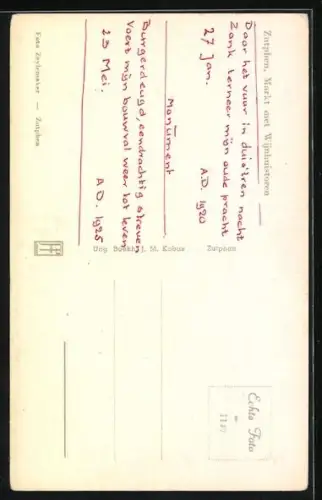 Zutphen, Markt met Wijnhuistoren
Door het vuur in duist'ren nacht
Zonk terneer mijn oude pracht
27 Jan. A.D. 1920
Monument
Burgerdeugd, eendrachtig streven
Voert mijn bouwval weer tot leven
23 Mei: A.D. 1925
Foto Zeylemaker — Zutphen
Uitg. Boekh. J. M. Kobus Zutphen
Echte Foto